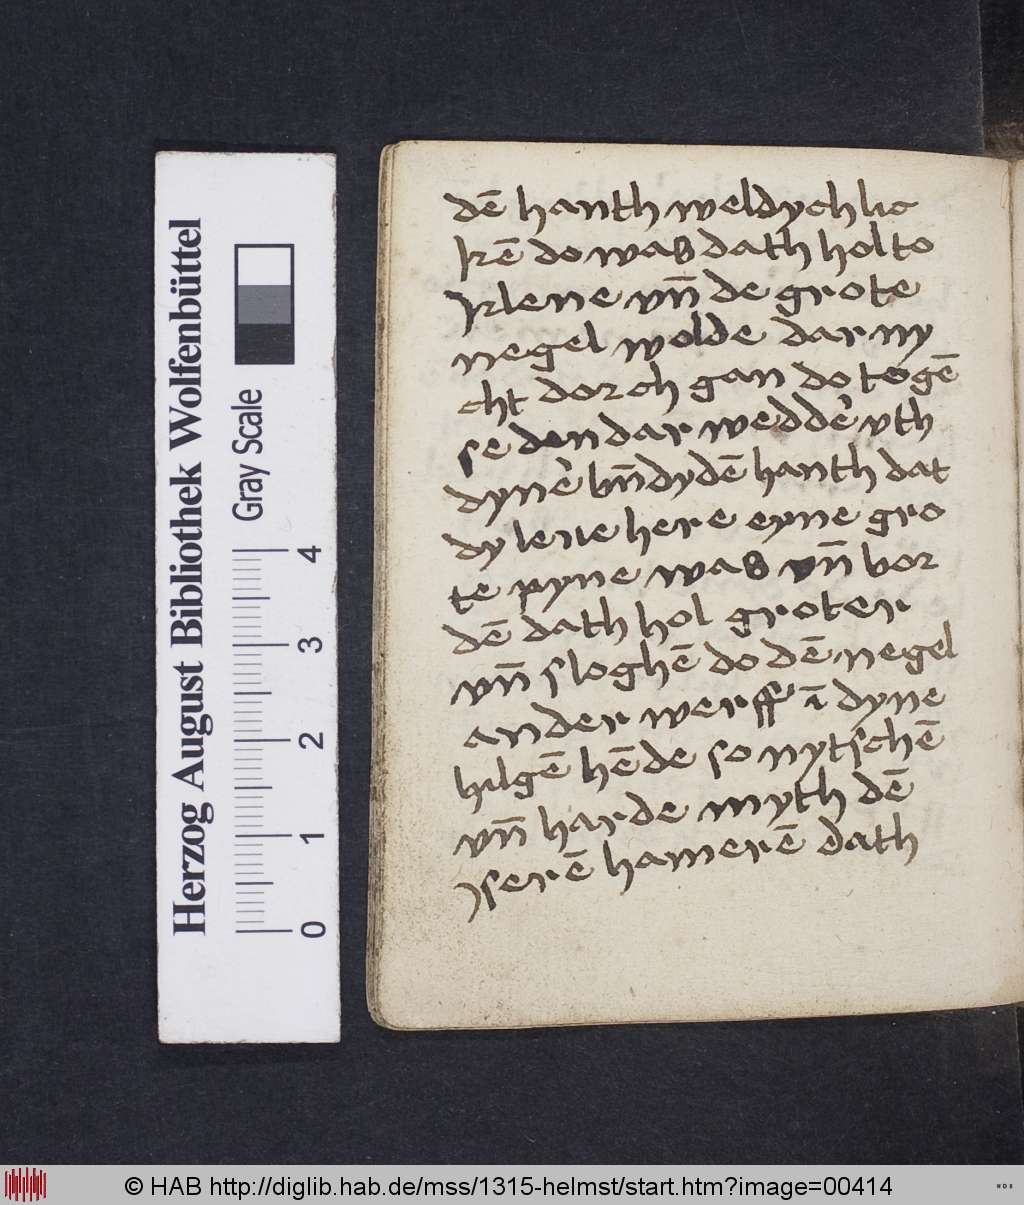 dē hanth weldychlic
kē do was dath hol to
klene vn̄ de grote
negel wolde dar ny
cht dorch gan do togē
se den dar wedder vth
dyner vn̄ dydē hanth dat
dy leue here eyne gro
te pyne was vn̄ bor
dē dath hol groter
vn̄ sloghē do dē negel
ander werff ī dyne
hilgē hēde so nytschē
vn̄ harde myth dē
Iserē hamerē dath
Herzog August Bibliothek Wolfenbüttel
Gray Scale
0 1 2 3 4
© HAB http://diglib.hab.de/mss/1315-helmst/start.htm?image=00414